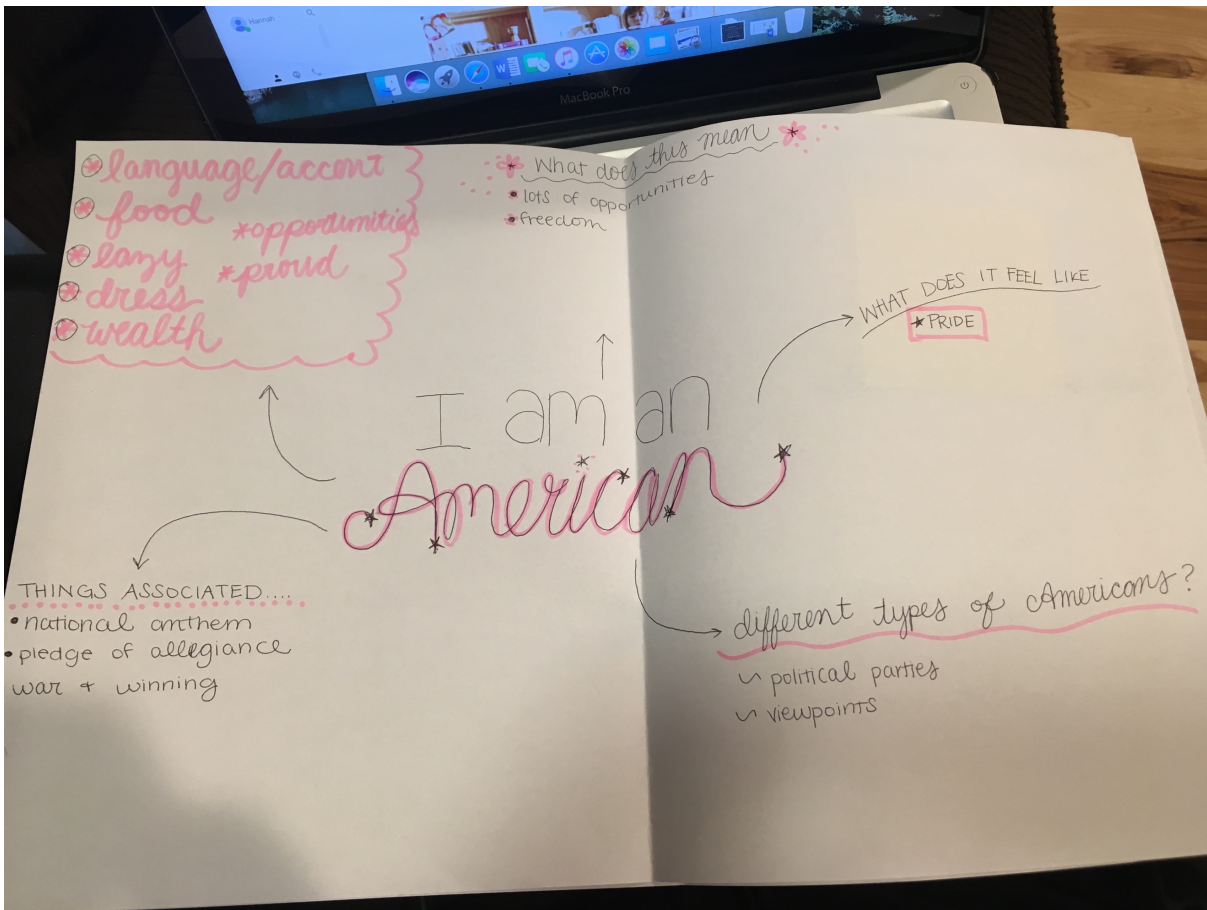 Hannah
MacBook Pro
language/accent
food
*opportunities
lazy
*proud
dress
wealth
What does this mean
lots of opportunities
freedom
WHAT DOES IT FEEL LIKE
PRIDE
I am an
American
THINGS ASSOCIATED....
• national anthem
• pledge of allegiance
war + winning
different types of Americans?
~ political parties
~ viewpoints